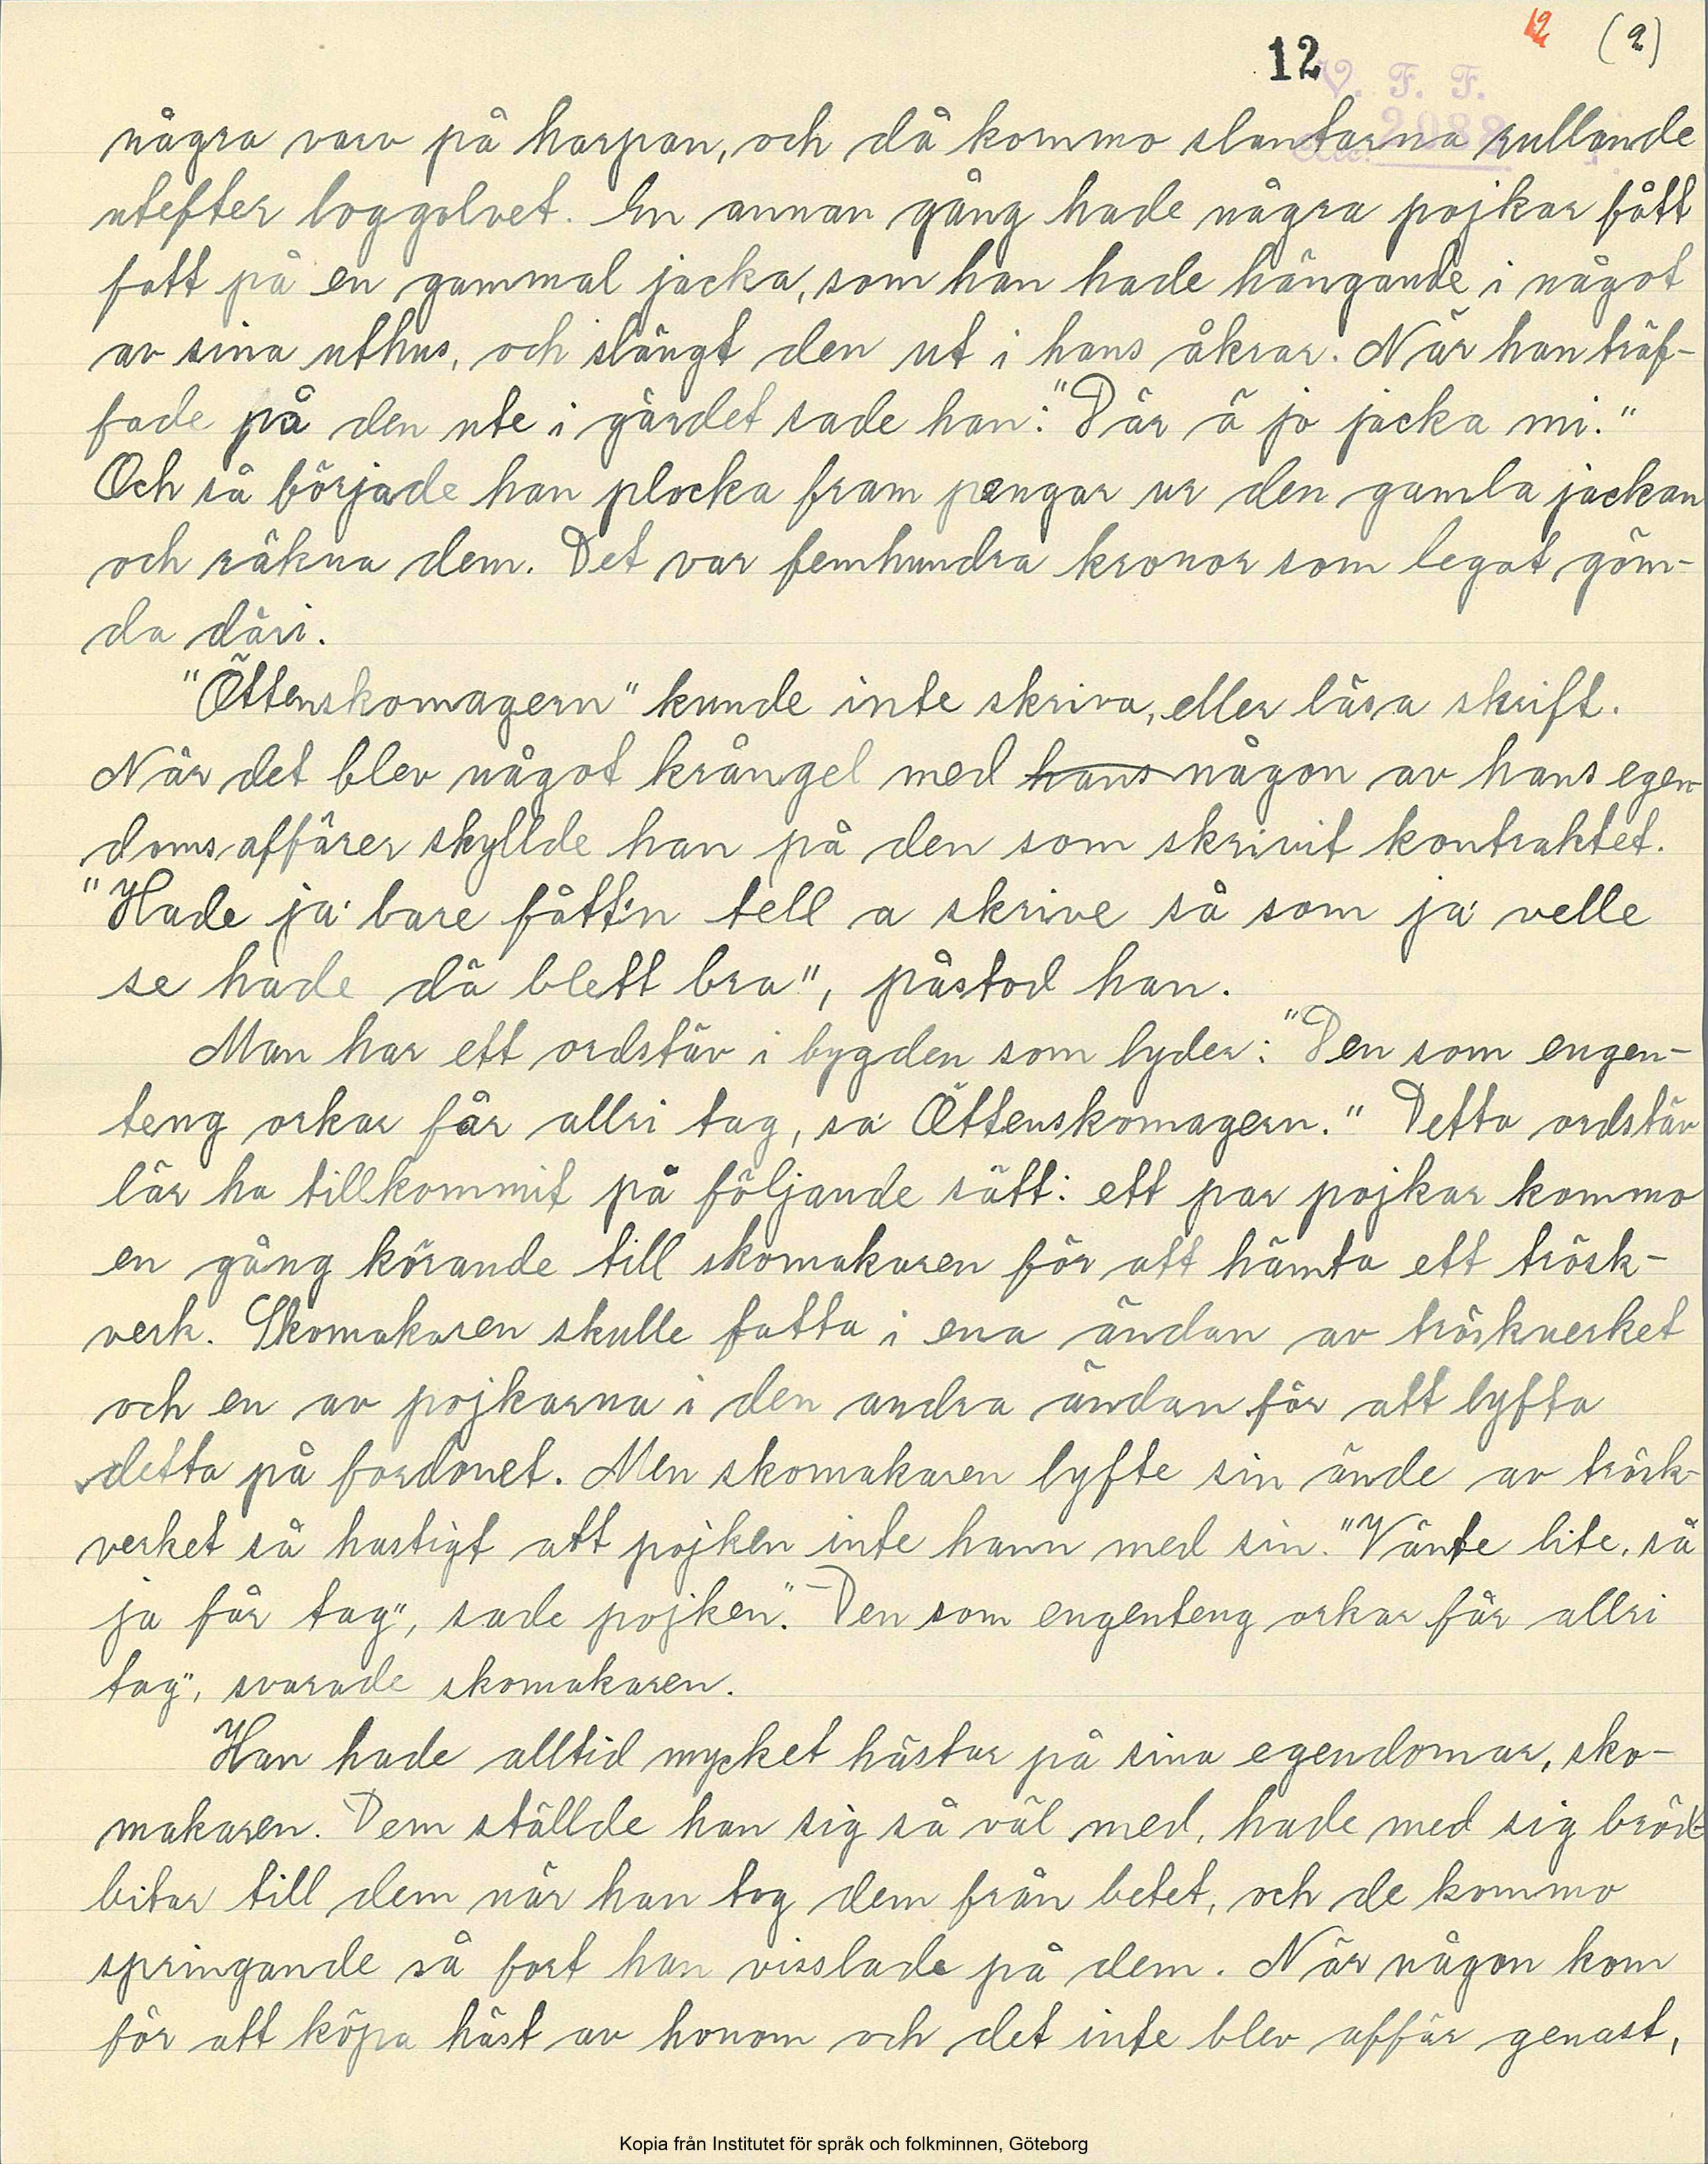 12 (2)
V. F. F.
2088
några varv på harpan, och då kommo slantarna rullande
utefter loggolvet. En annan gång hade några pojkar fått
fatt på en gammal jacka, som han hade hängande i något
av sina uthus, och slängt den ut i hans åkrar. När han träf-
fade på den ute i gärdet sade han: "Där ä jo jacka mi."
Och så började han plocka fram pengar ur den gamla jackan
och räkna dem. Det var femhundra kronor som legat göm-
da däri.
"Öttenskomagern" kunde inte skriva, eller läsa skrift.
När det blev något krångel med hans någon av hans egen-
domsaffärer skyllde han på den som skrivit kontraktet.
"Hade ja' bare fått'n tell a skrive så som ja' velle
se hade dä blett bra", påstod han.
Man har ett ordstäv i bygden som lyder: "Den som engen-
teng orkar får allri tag, sa' Öttenskomagern." Detta ordstäv
lär ha tillkommit på följande sätt: ett par pojkar kommo
en gång körande till skomakaren för att hämta ett trösk-
verk. Skomakaren skulle fatta i ena ändan av tröskverket
och en av pojkarna i den andra ändan för att lyfta
detta på fordonet. Men skomakaren lyfte sin ände av trösk-
verket så hastigt att pojken inte hann med sin. "Vänte lite, så
ja får tag", sade pojken. "Den som engenteng orkar får allri
tag", svarade skomakaren.
Han hade alltid mycket hästar på sina egendomar, sko-
makaren. Dem ställde han sig så väl med, hade med sig bröd-
bitar till dem när han tog dem från betet, och de kommo
springande så fort han visslade på dem. När någon kom
för att köpa häst av honom och det inte blev affär genast,
Kopia från Institutet för språk och folkminnen, Göteborg